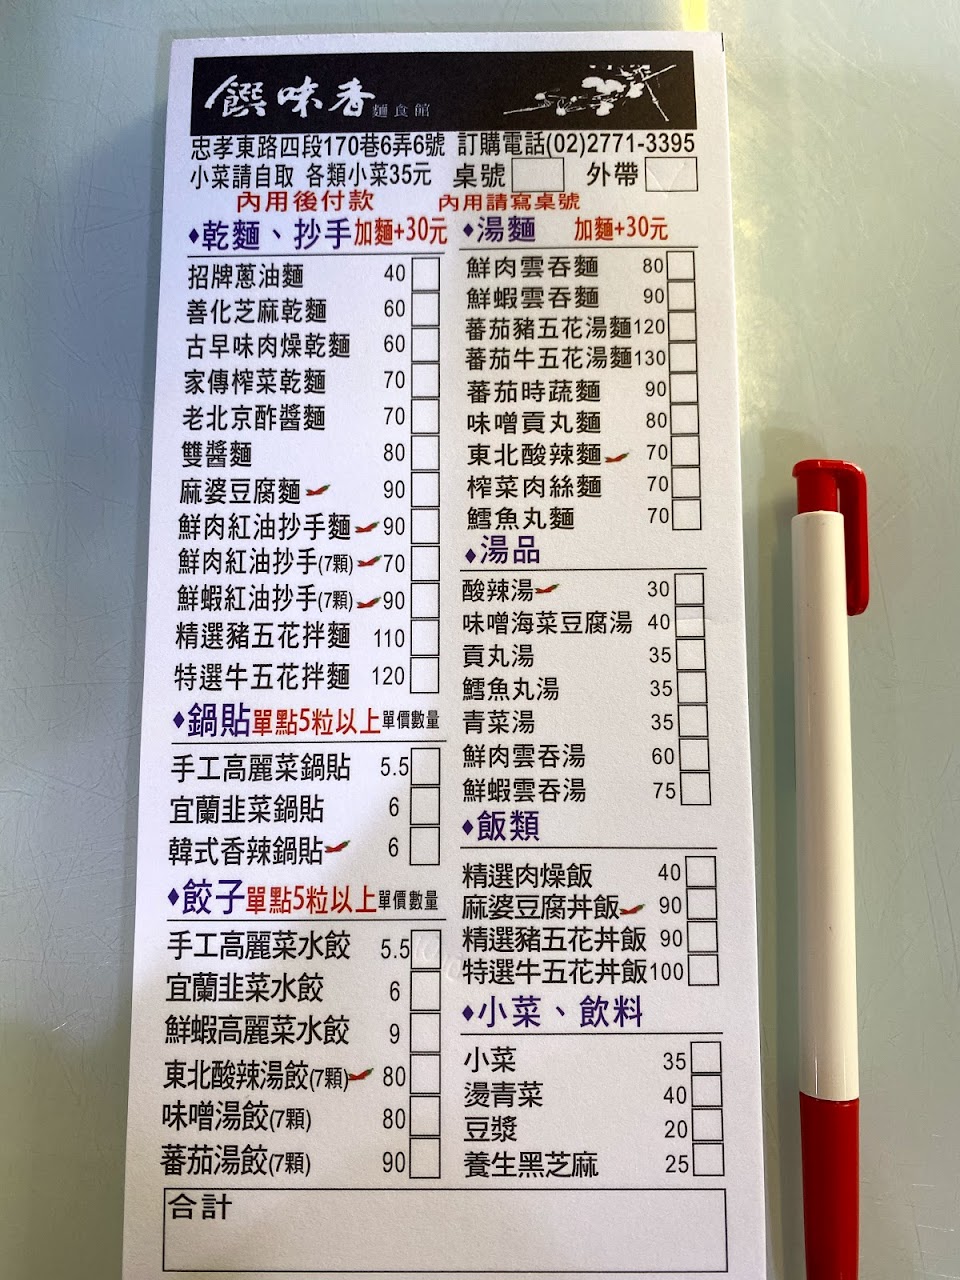 饌味香 麵食館
忠孝東路四段170巷6弄6號 訂購電話(02)2771-3395
小菜請自取 各類小菜35元 桌號 外帶
內用後付款 內用請寫桌號
♦乾麵、抄手加麵+30元
招牌蔥油麵 40
善化芝麻乾麵 60
古早味肉燥乾麵 60
家傳榨菜乾麵 70
老北京酢醬麵 70
雙醬麵 80
麻婆豆腐麵 90
鮮肉紅油抄手麵 90
鮮肉紅油抄手(7顆) 70
鮮蝦紅油抄手(7顆) 90
精選豬五花拌麵 110
特選牛五花拌麵 120
♦鍋貼單點5粒以上單價數量
手工高麗菜鍋貼 5.5
宜蘭韭菜鍋貼 6
韓式香辣鍋貼 6
♦餃子單點5粒以上單價數量
手工高麗菜水餃 5.5
宜蘭韭菜水餃 6
鮮蝦高麗菜水餃 9
東北酸辣湯餃(7顆) 80
味噌湯餃(7顆) 80
蕃茄湯餃(7顆) 90
♦湯麵 加麵+30元
鮮肉雲吞麵 80
鮮蝦雲吞麵 90
蕃茄豬五花湯麵 120
蕃茄牛五花湯麵 130
蕃茄時蔬麵 90
味噌貢丸麵 80
東北酸辣麵 70
榨菜肉絲麵 70
鱈魚丸麵 70
♦湯品
酸辣湯 30
味噌海菜豆腐湯 40
貢丸湯 35
鱈魚丸湯 35
青菜湯 35
鮮肉雲吞湯 60
鮮蝦雲吞湯 75
♦飯類
精選肉燥飯 40
麻婆豆腐丼飯 90
精選豬五花丼飯 90
特選牛五花丼飯 100
♦小菜、飲料
小菜 35
燙青菜 40
豆漿 20
養生黑芝麻 25
合計